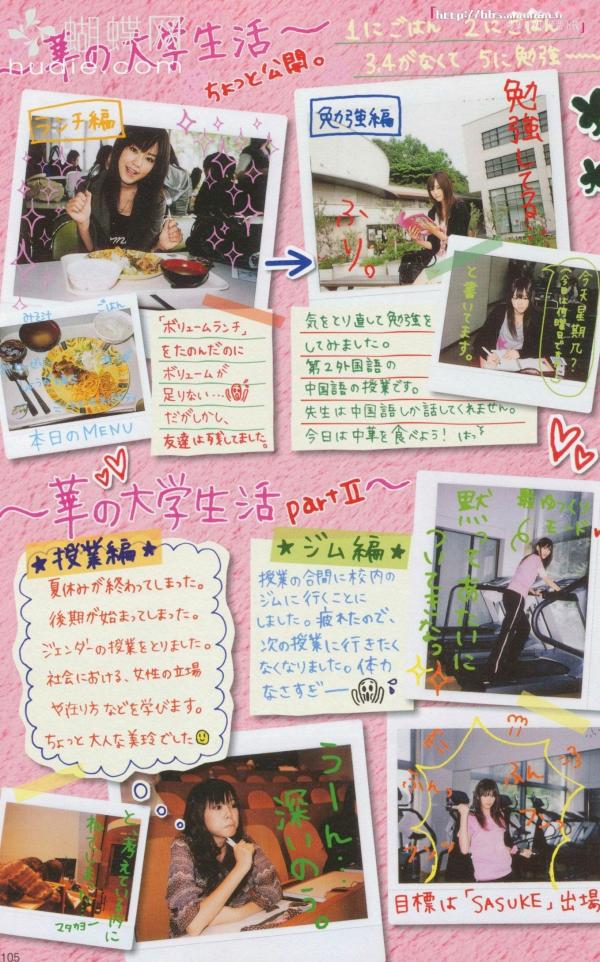 〜華の大学生活〜
ちょっと公開。
蝴蝶网
hudie.com
1にごはん 2にごはん
3.4がなくて 5に勉強〜
ランチ編
勉強編
勉強してる。
ふり。
みそ汁
ごはん
本日のMENU
「ボリュームランチ」
をたのんだのに
ボリュームが
足りない…
だがしかし、
友達は残してました。
気をとり直して勉強を
してみました。
第2外国語の
中国語の授業です。
先生は中国語しか話してくれません。
今日は中華を食べよう!
今天星期几?
と書いてます。
〜華の大学生活 partⅡ〜
★授業編★
夏休みが終わってしまった。
後期が始まってしまった。
ジェンダーの授業をとりました。
社会における、女性の立場
や在り方などを学びます。
ちょっと大人な美玲でした
★ジム編★
授業の合間に校内の
ジムに行くことに
しました。疲れたので、
次の授業に行きたく
なくなりました。体力
なさすぎー
黙ってあたいに
ついてきなっ
最ゆっくり
モード
うーん…
深いのう。
と、考えている内に
ねてしまった。
マタカヨー
ふんっ
ふんっ
目標は「SASUKE」出場
105